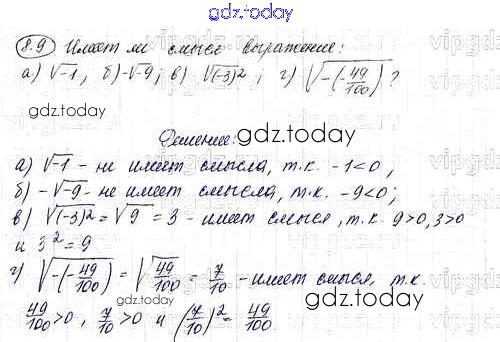 gdz.today
8.9 Имеет ли смысл выражение:
а) √-1, б) -√-9; в) √(-3)²; г) √-(-49/100)?
gdz.today
Решение:
gdz.today
а) √-1 - не имеет смысла, т.к. -1<0;
б) -√-9 - не имеет смысла, т.к. -9<0;
в) √(-3)² = √9 = 3 - имеет смысл, т.к. 9>0, 3>0
и 3² = 9
г) √-(-49/100) = √49/100 = 7/10 - имеет смысл, т.к.
gdz.today
49/100>0, 7/10>0 и (7/10)² = 49/100.
gdz.today